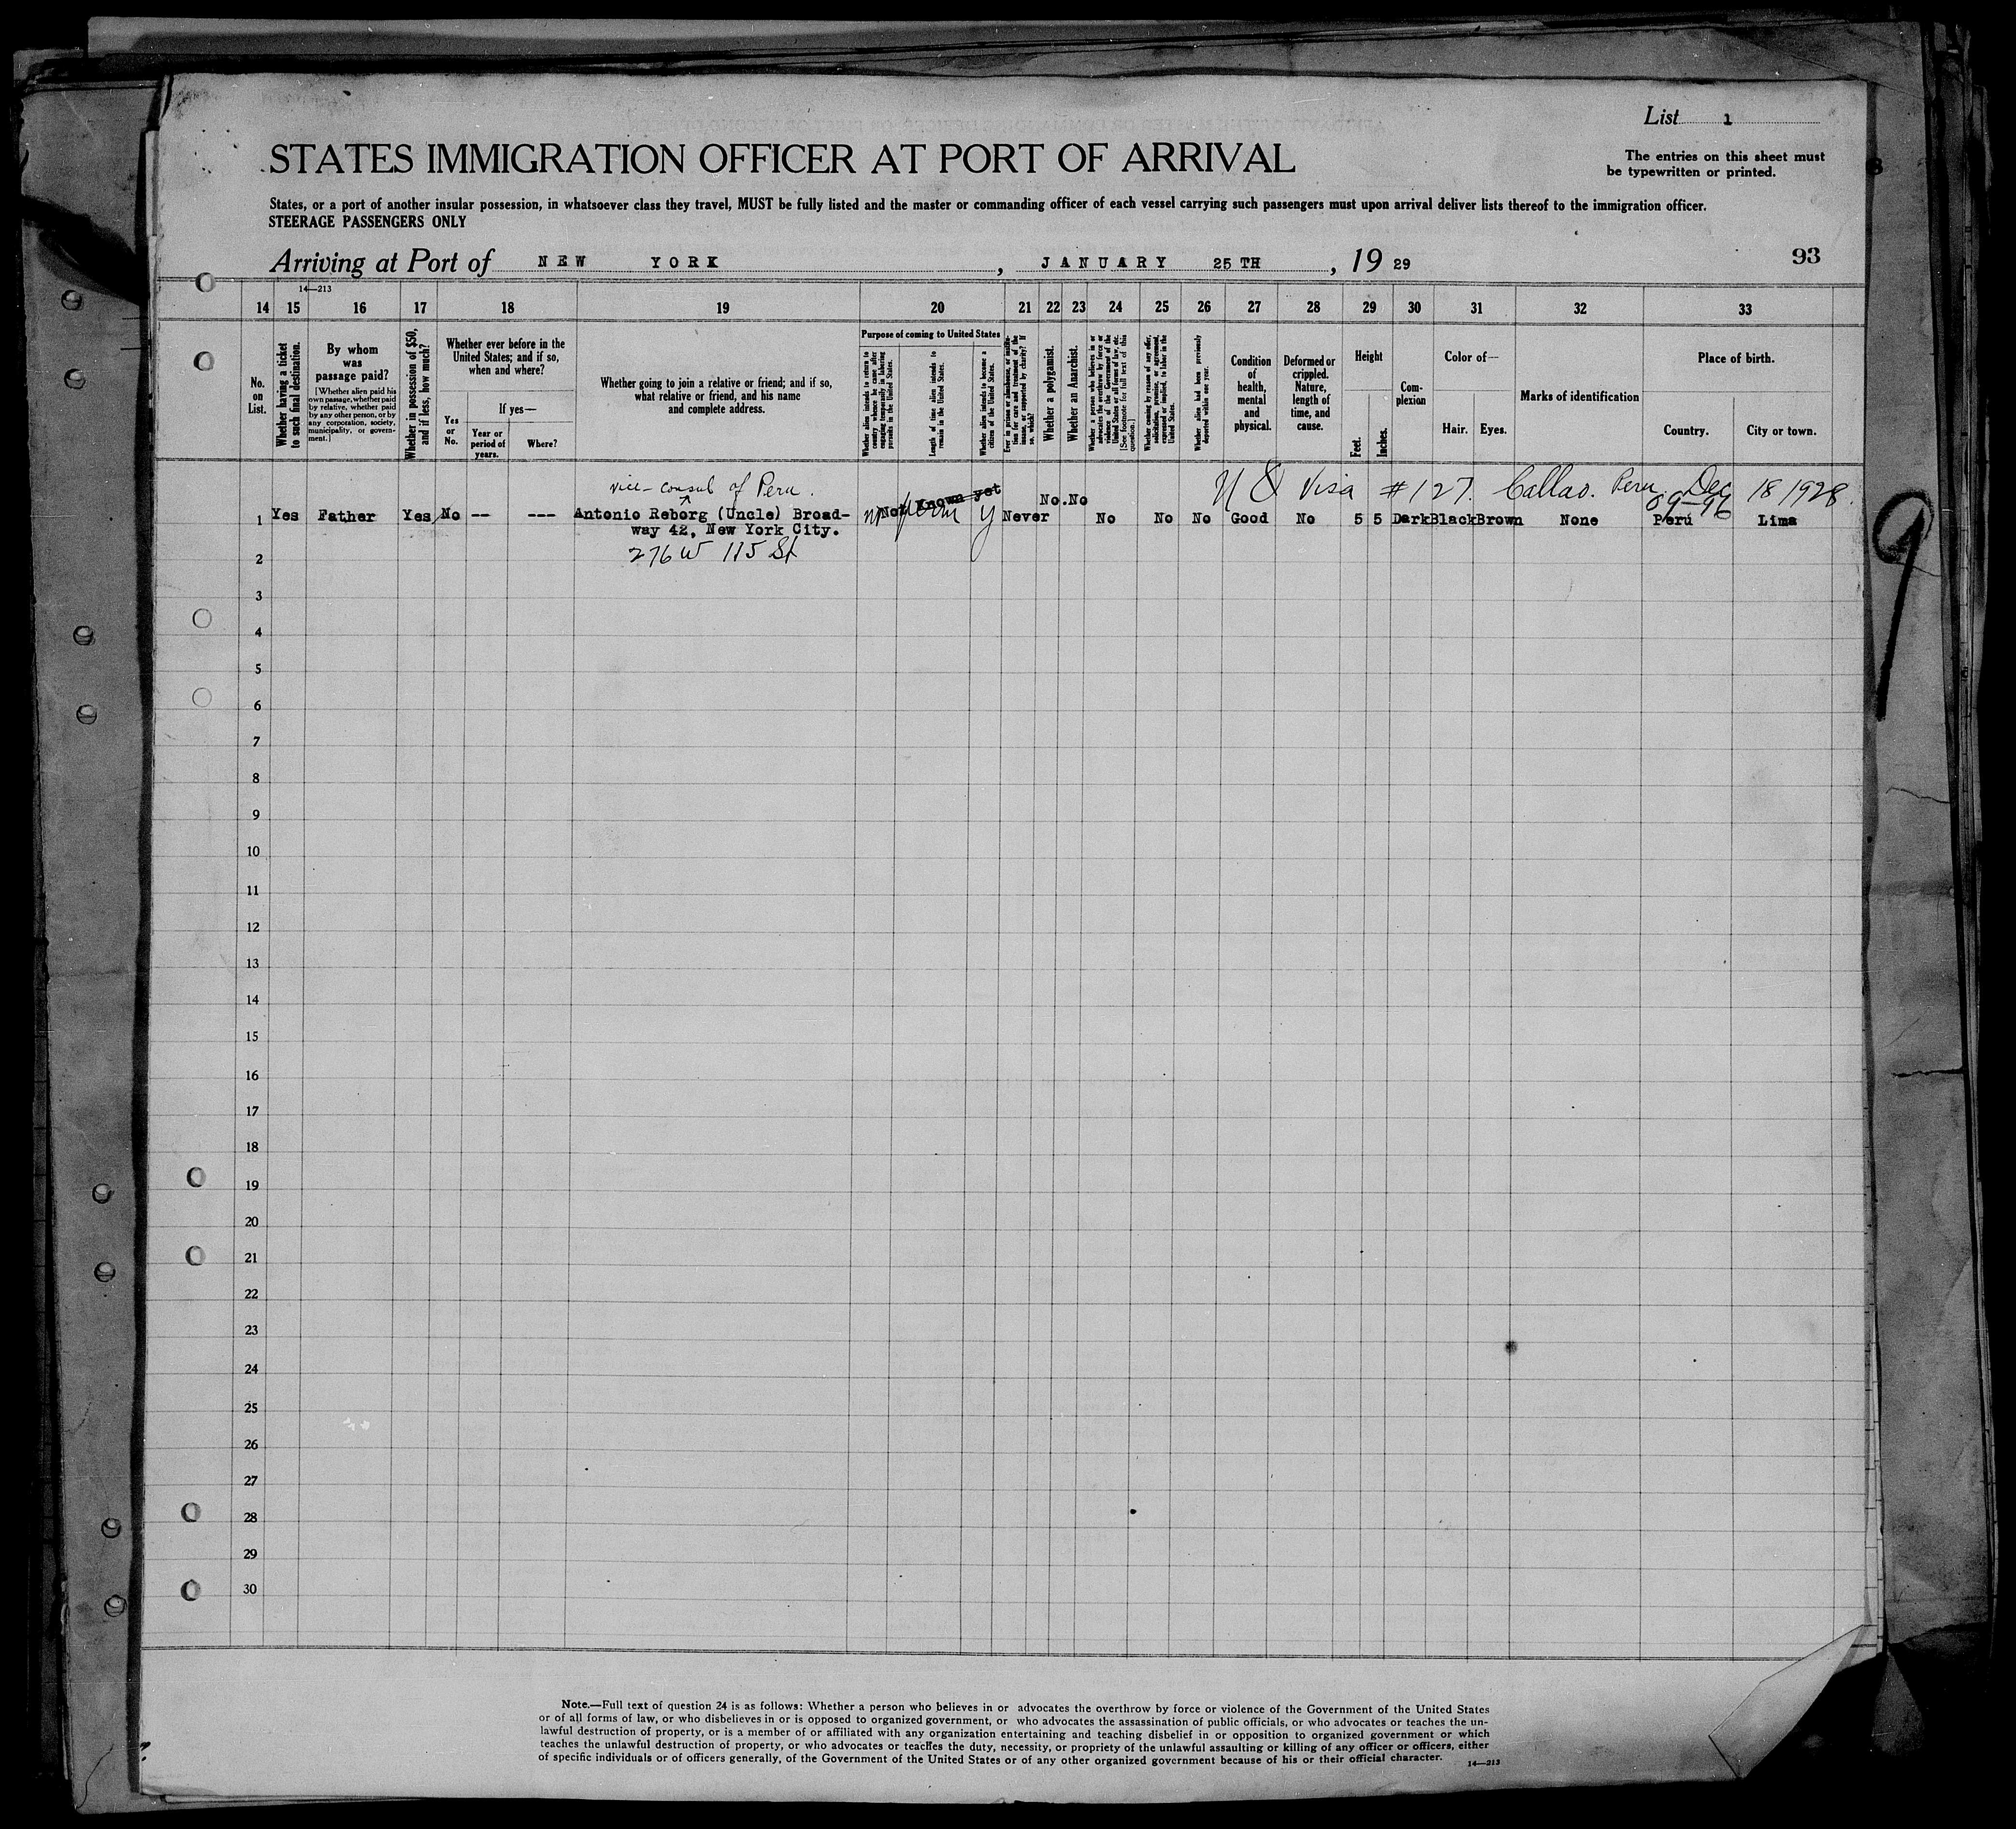 List 1
STATES IMMIGRATION OFFICER AT PORT OF ARRIVAL
The entries on this sheet must
be typewritten or printed.
States, or a port of another insular possession, in whatsoever class they travel, MUST be fully listed and the master or commanding officer of each vessel carrying such passengers must upon arrival deliver lists thereof to the immigration officer.
STEERAGE PASSENGERS ONLY
Arriving at Port of NEW YORK, JANUARY 25TH, 1929
93
14—213
14 15 16 17 18 19 20 21 22 23 24 25 26 27 28 29 30 31 32 33
No. on List.
Whether having a ticket to such final destination.
By whom was passage paid?
[Whether alien paid his own passage, whether paid by relative, whether paid by any other person, or by any corporation, society, municipality, or government.]
Whether in possession of $50, and if less, how much?
Whether ever before in the United States; and if so, when and where?
Yes or No.
If yes—
Year or period of years.
Where?
Whether going to join a relative or friend; and if so, what relative or friend, and his name and complete address.
Purpose of coming to United States
Whether alien intends to return to country whence he came after engaging temporarily in laboring pursuits in the United States.
Length of time alien intends to remain in the United States.
Whether alien intends to become a citizen of the United States.
Ever in prison or almshouse, or institution for care and treatment of the insane, or supported by charity? If so, which?
Whether a polygamist.
Whether an Anarchist.
Whether a person who believes in or advocates the overthrow by force or violence of the Government of the United States or all forms of law, etc. [See footnote for full text of this question.]
Whether coming by reason of any offer, solicitation, promise, or agreement, expressed or implied, to labor in the United States.
Whether alien had been previously deported within one year.
Condition of health, mental and physical.
Deformed or crippled. Nature, length of time, and cause.
Height
Feet.
Inches.
Complexion
Color of—
Hair.
Eyes.
Marks of identification
Place of birth.
Country.
City or town.
vice-consul of Peru.
Visa #127. Callao. Peru Dec 18 1928.
09-96
1 Yes Father Yes No -- --- Antonio Reborg (Uncle) Broad- Not Known yet Never No. No No No No Good No 5 5 Dark Black Brown None Perú Lima
way 42, New York City.
276 W 115 St
2
3
4
5
6
7
8
9
10
11
12
13
14
15
16
17
18
19
20
21
22
23
24
25
26
27
28
29
30
9
Note.—Full text of question 24 is as follows: Whether a person who believes in or advocates the overthrow by force or violence of the Government of the United States
or of all forms of law, or who disbelieves in or is opposed to organized government, or who advocates the assassination of public officials, or who advocates or teaches the un-
lawful destruction of property, or is a member of or affiliated with any organization entertaining and teaching disbelief in or opposition to organized government or which
teaches the unlawful destruction of property, or who advocates or teaches the duty, necessity, or propriety of the unlawful assaulting or killing of any officer or officers, either
of specific individuals or of officers generally, of the Government of the United States or of any other organized government because of his or their official character.
14—213